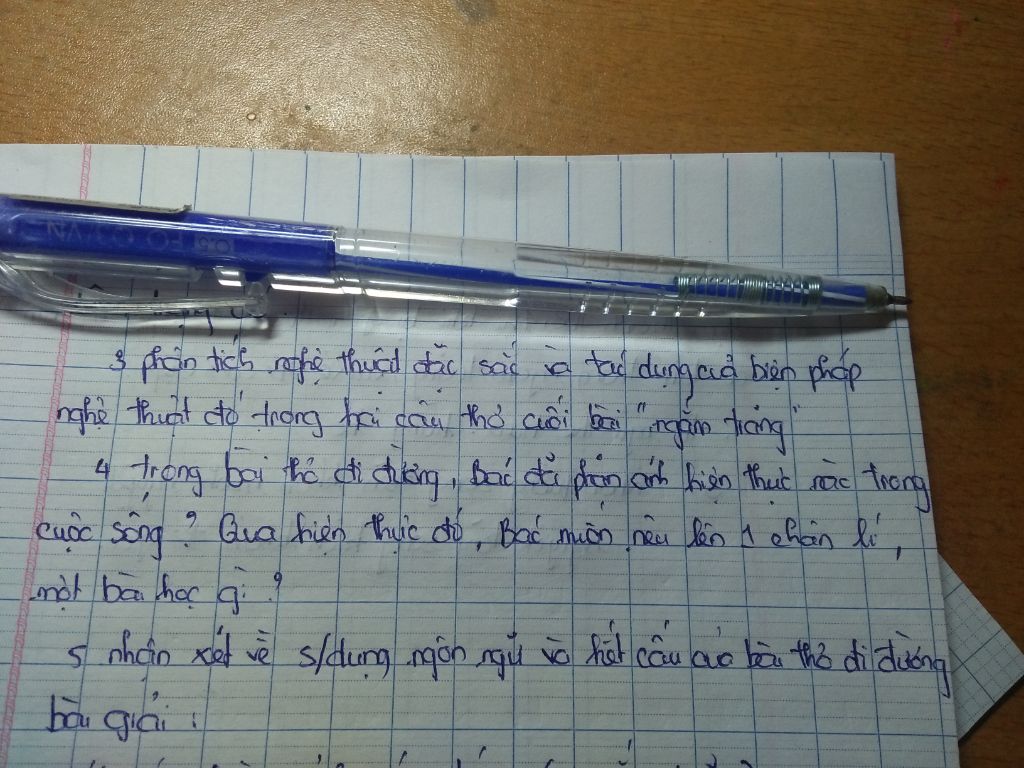 0.5
3 phân tích nghệ thuật đặc sắc và tác dụng của biện pháp
nghệ thuật đó trong hai câu thơ cuối bài "ngắm trăng"
4 trong bài thơ đi đường, bác đã phản ánh hiện thực nào trong
cuộc sống? Qua hiện thực đó, Bác muốn nêu lên 1 chân lí,
một bài học gì?
5 nhận xét về s/dụng ngôn ngữ và kết cấu của bài thơ đi đường
bài giải: